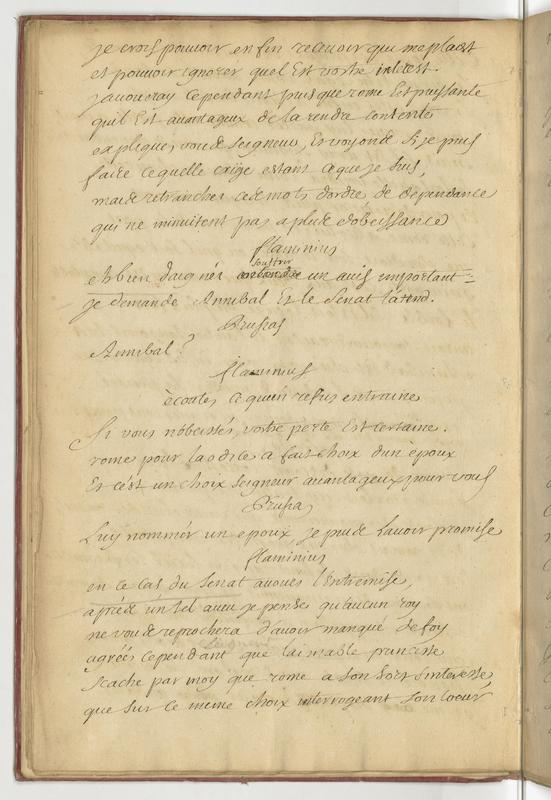 je crois pouvoir enfin recevoir qui me plaist
et pouvoir ignorer quel Est vostre interest.
j'avouray cependant puisque rome Est puissante
quil Est avantageux de la rendre contente
expliqués vous de seigneur, Et voyons de si je puis
faire ce quelle exige estant ce que je suis,
mais de retrancher ces mots dordre, de dépendance
qui ne m'invitent pas a plus d'obeissance
flaminius
eh bien daignés souffrir un avis important
je demande Annibal Et le Senat l'atend.
Prusias
Annibal?
flaminius
écoutes ce qu'un refus entraine
Si vous n'obeissés, vostre perte Est certaine.
rome pour laodice a fait choix d'un époux
Et c'est un choix seigneur avantageux pour vous
Prusias
Luy nommér un epoux, je puis de l'avoir promise
flaminius
en ce cas du Senat avoués l'entremise,
aprés de un tel aveu je pense qu'aucun roy
ne vous de reprochera d'avoir manqué de foy
agréés cependant que l'aimable princesse
scache par moy que rome a son sort s'interesse,
que sur ce meme choix interrogeant son coeur